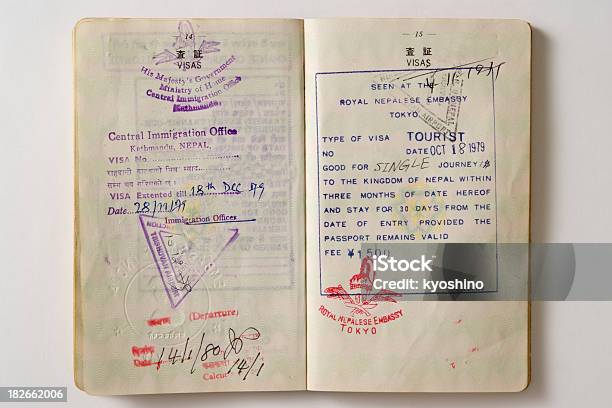 — 14 —
査 証
VISAS
His Majesty's Government
Ministry of Home
Central Immigration Office
Kathmandu.
Central Immigration Office
Kathmandu, NEPAL.
VISA No.
VISA Extented till 18th DEC 79
Date 28/11/79
Immigration Officer
(Departure)
Date 14/1/80
14/1
— 15 —
査 証
VISAS
SEEN AT THE
ROYAL NEPALESE EMBASSY
TOKYO.
TYPE OF VISA TOURIST
NO DATE OCT 18 1979
GOOD FOR SINGLE JOURNEY/S
TO THE KINGDOM OF NEPAL WITHIN
THREE MONTHS OF DATE HEREOF
AND STAY FOR 30 DAYS FROM THE
DATE OF ENTRY PROVIDED THE
PASSPORT REMAINS VALID
FEE ¥1500
ROYAL NEPALESE EMBASSY
TOKYO
iStock
Credit: kyoshino
182662006